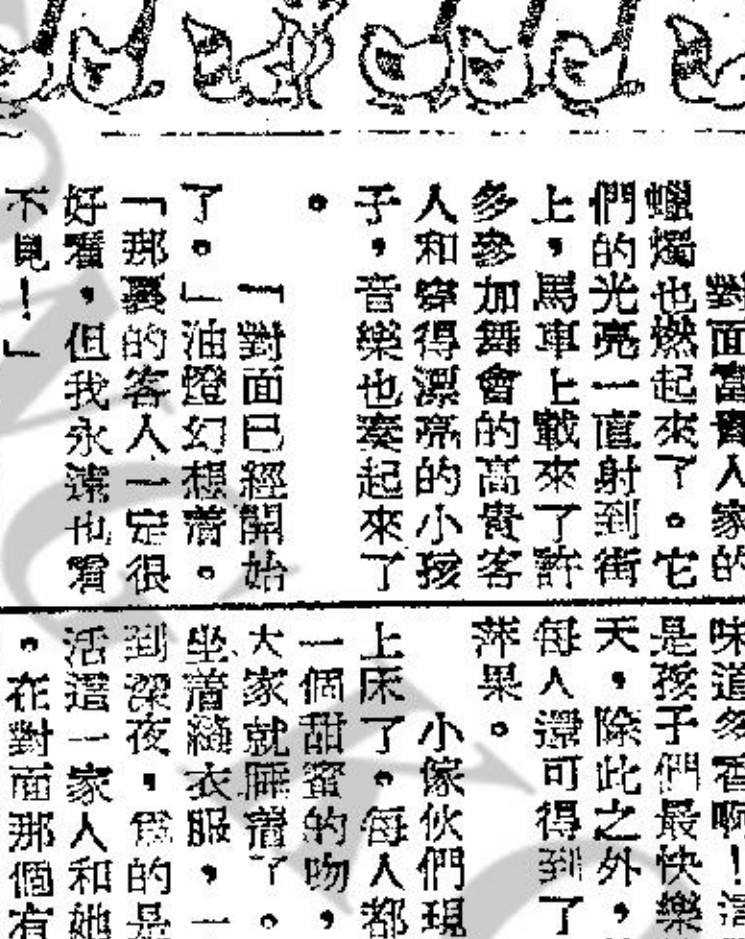 對面富貴人家的
蠟燭也燃起來了。它
們的光亮一直射到街
上，馬車上載來了許
多參加舞會的高貴客
人和穿得漂亮的小孩
子，音樂也奏起來了
。
「對面已經開始
了。」油燈幻想著。
「那裏的客人一定很
好看，但我永遠也看
不見！」
味道多香啊！這
是孩子們最快樂
天，除此之外，
每人還可得到了
苹果。
小傢伙們現
上床了。每人都
一個甜蜜的吻，
大家就睡着了。
坐着縫衣服，一
到深夜，爲的是
活這一家人和她
。在對面那個有